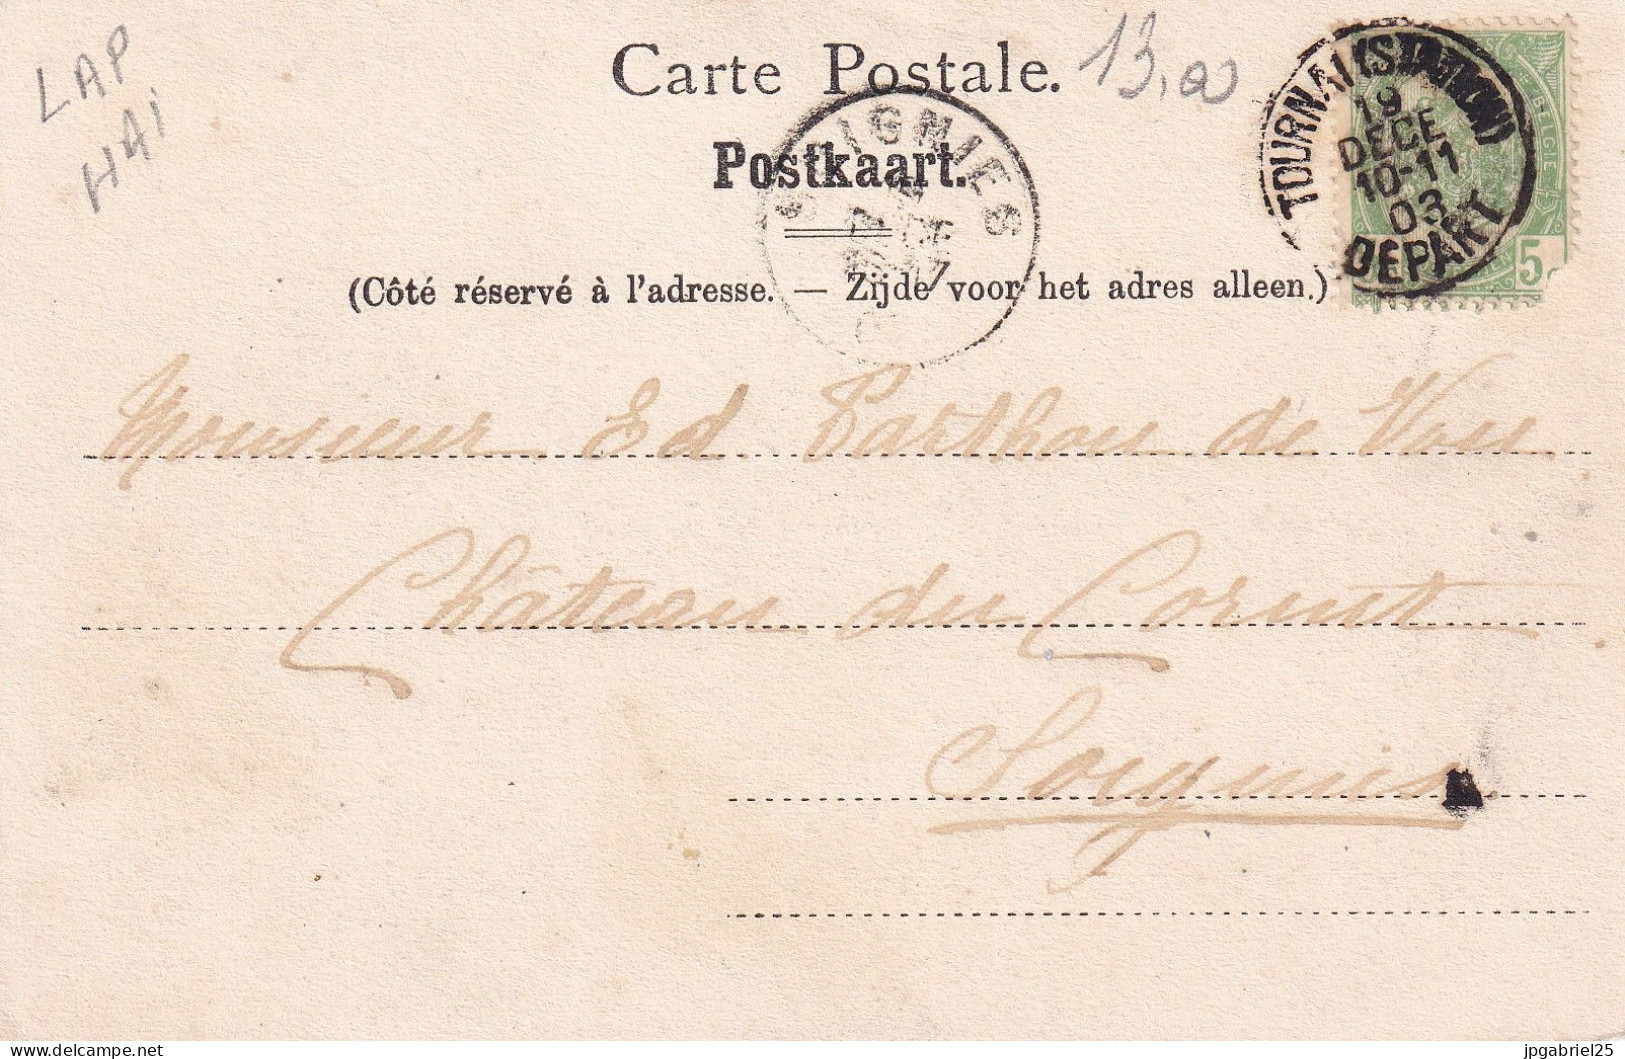 LAP
HAI
Carte Postale.
13,00
Postkaart.
SOIGNIES
TOURNAI (STATION)
19
DECE
10-11
03
DEPART
BELGIE
5
(Côté réservé à l'adresse. — Zijde voor het adres alleen.)
Monsieur Ed Parthon de Von
Château du Cornet
Soignies
jpgabriel25